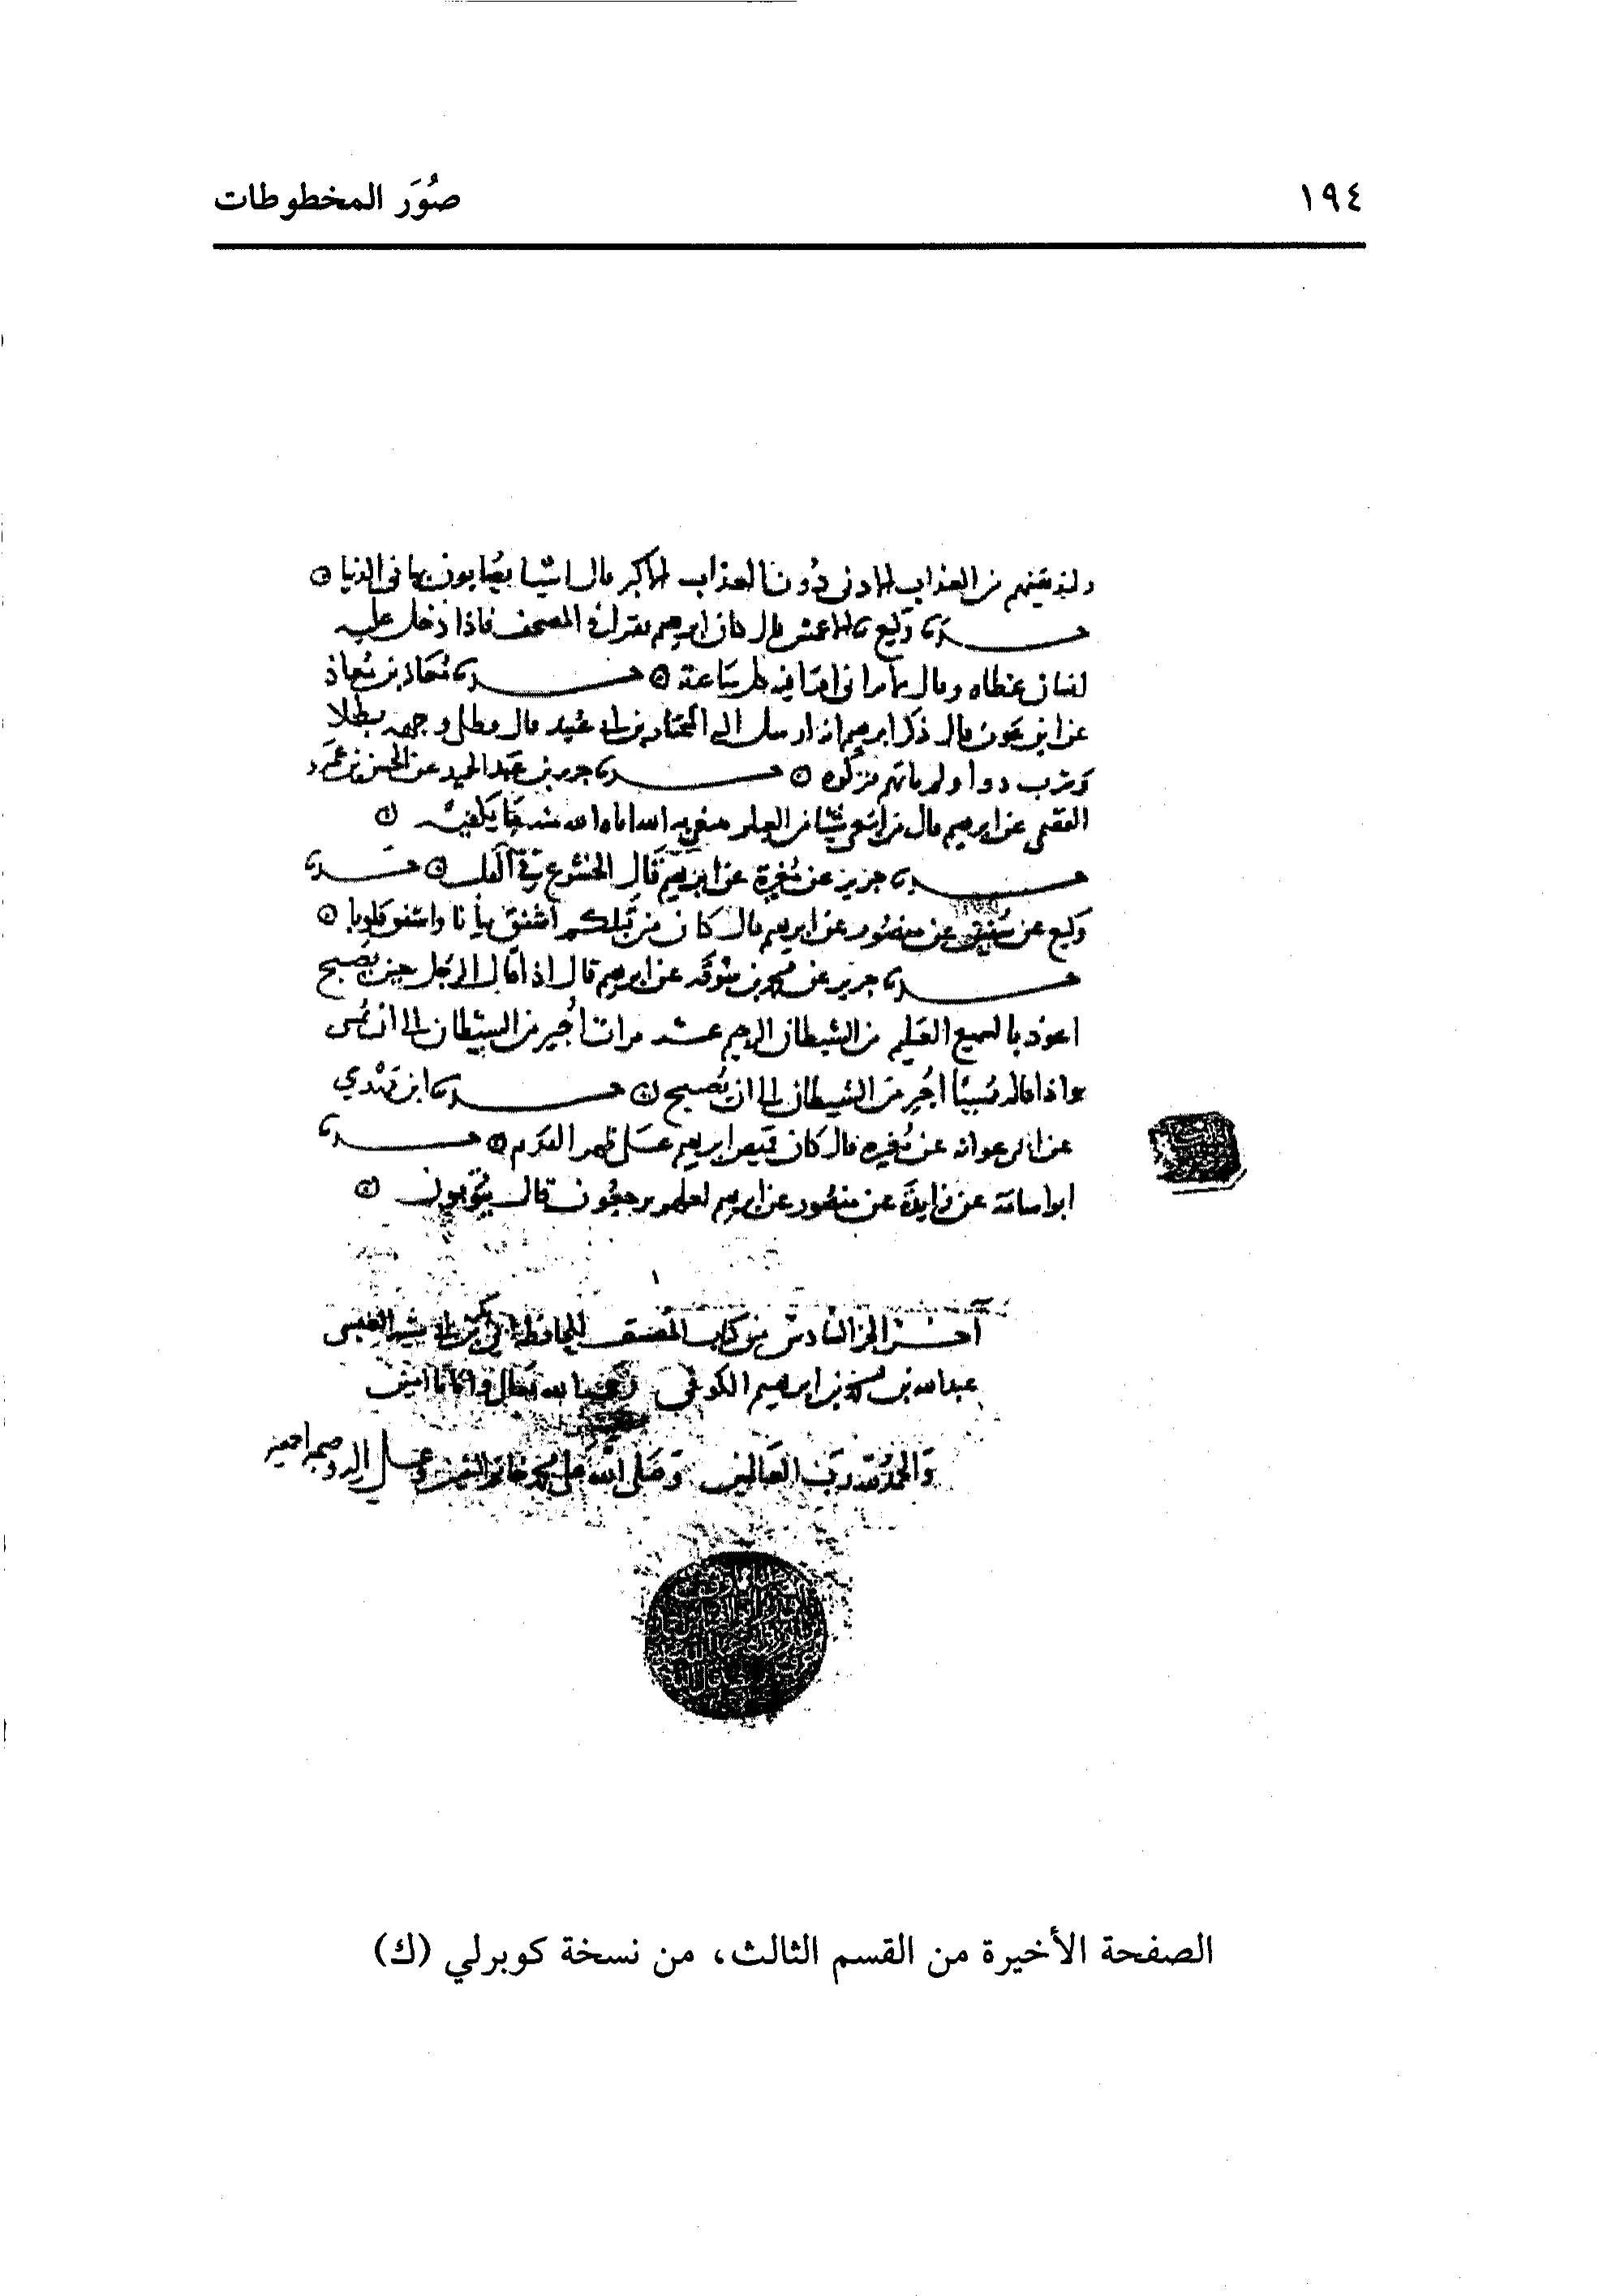 ١٩٤
صُوَر المخطوطات
ولنذيقنهم من العذاب الادنى دُون العذاب الاكبر قال اشيا يصابون بها في الدنيا
حدثنا وكيع عن الاعمش قال كان ابرهيم يقرا في المصحف فاذا دخل عليه
انسان غطاه وقال يراني اقرا فيه كل ساعة حدثنا مُعاذ بن مُعاذ
عن ابن عون قال ذكر ابرهيم انه ارسل اليه المختار بن ابي عُبيد قال فطلى وجهه بطلا
وشرب دوا ولم ياتهم فتركوه حدثنا جرير بن عبد الحميد عن الحسن بن عمرو
الفقيمي عن ابرهيم قال من ابتغى شيا من العلم يبتغي به الله اتاه الله منه بما يكفيه
حدثنا جرير عن مُغيرة عن ابرهيم قال الخشوع في القلب حدثنا
وكيع عن سُفين عن منصُور عن ابرهيم قال كان من قبلكم اشفق ثيابا واشفق قلوبا
حدثنا جرير عن محمد بن سُوقه عن ابرهيم قال اذا قال الرجل حين يصبح
اعوذ بالسميع العليم من الشيطان الرجيم عشر مرات اُجير من الشيطان الى ان يُمسى
واذا قاله مُمسيًا اُجير من الشيطان الى ان يُصبح حدثنا ابن مَهْدي
عن ابي عوانه عن مُغيره قال كان قميص ابرهيم على ظهر القدم حدثنا
ابو اسامة عن زايدة عن منصور عن ابرهيم لعلهم يرجعُون قال يتوبون
آخر الجزالسادس من كتاب المصنف للحافظ ابي بكر بن ابي شيبه العبسي
عبدالله بن محمد بن ابرهيم الكوفي رحمهما الله تعالى وايانا امين
والحمد لله رب العالمين وصلى الله على محمد خاتم النبيين وعلى اله وصحبه اجمعين
الصفحة الأخيرة من القسم الثالث، من نسخة كوبرلي (ك)